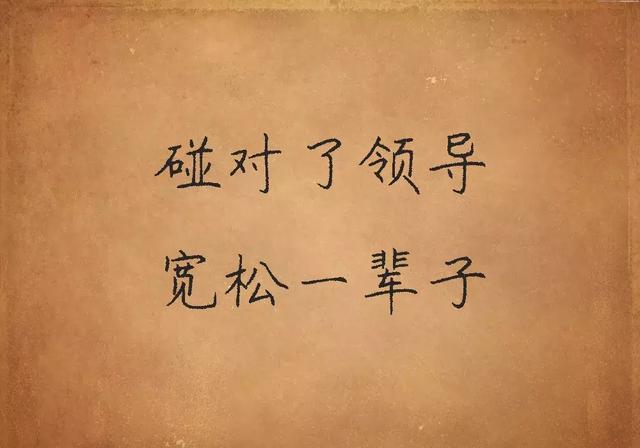 碰对了领导
宽松一辈子